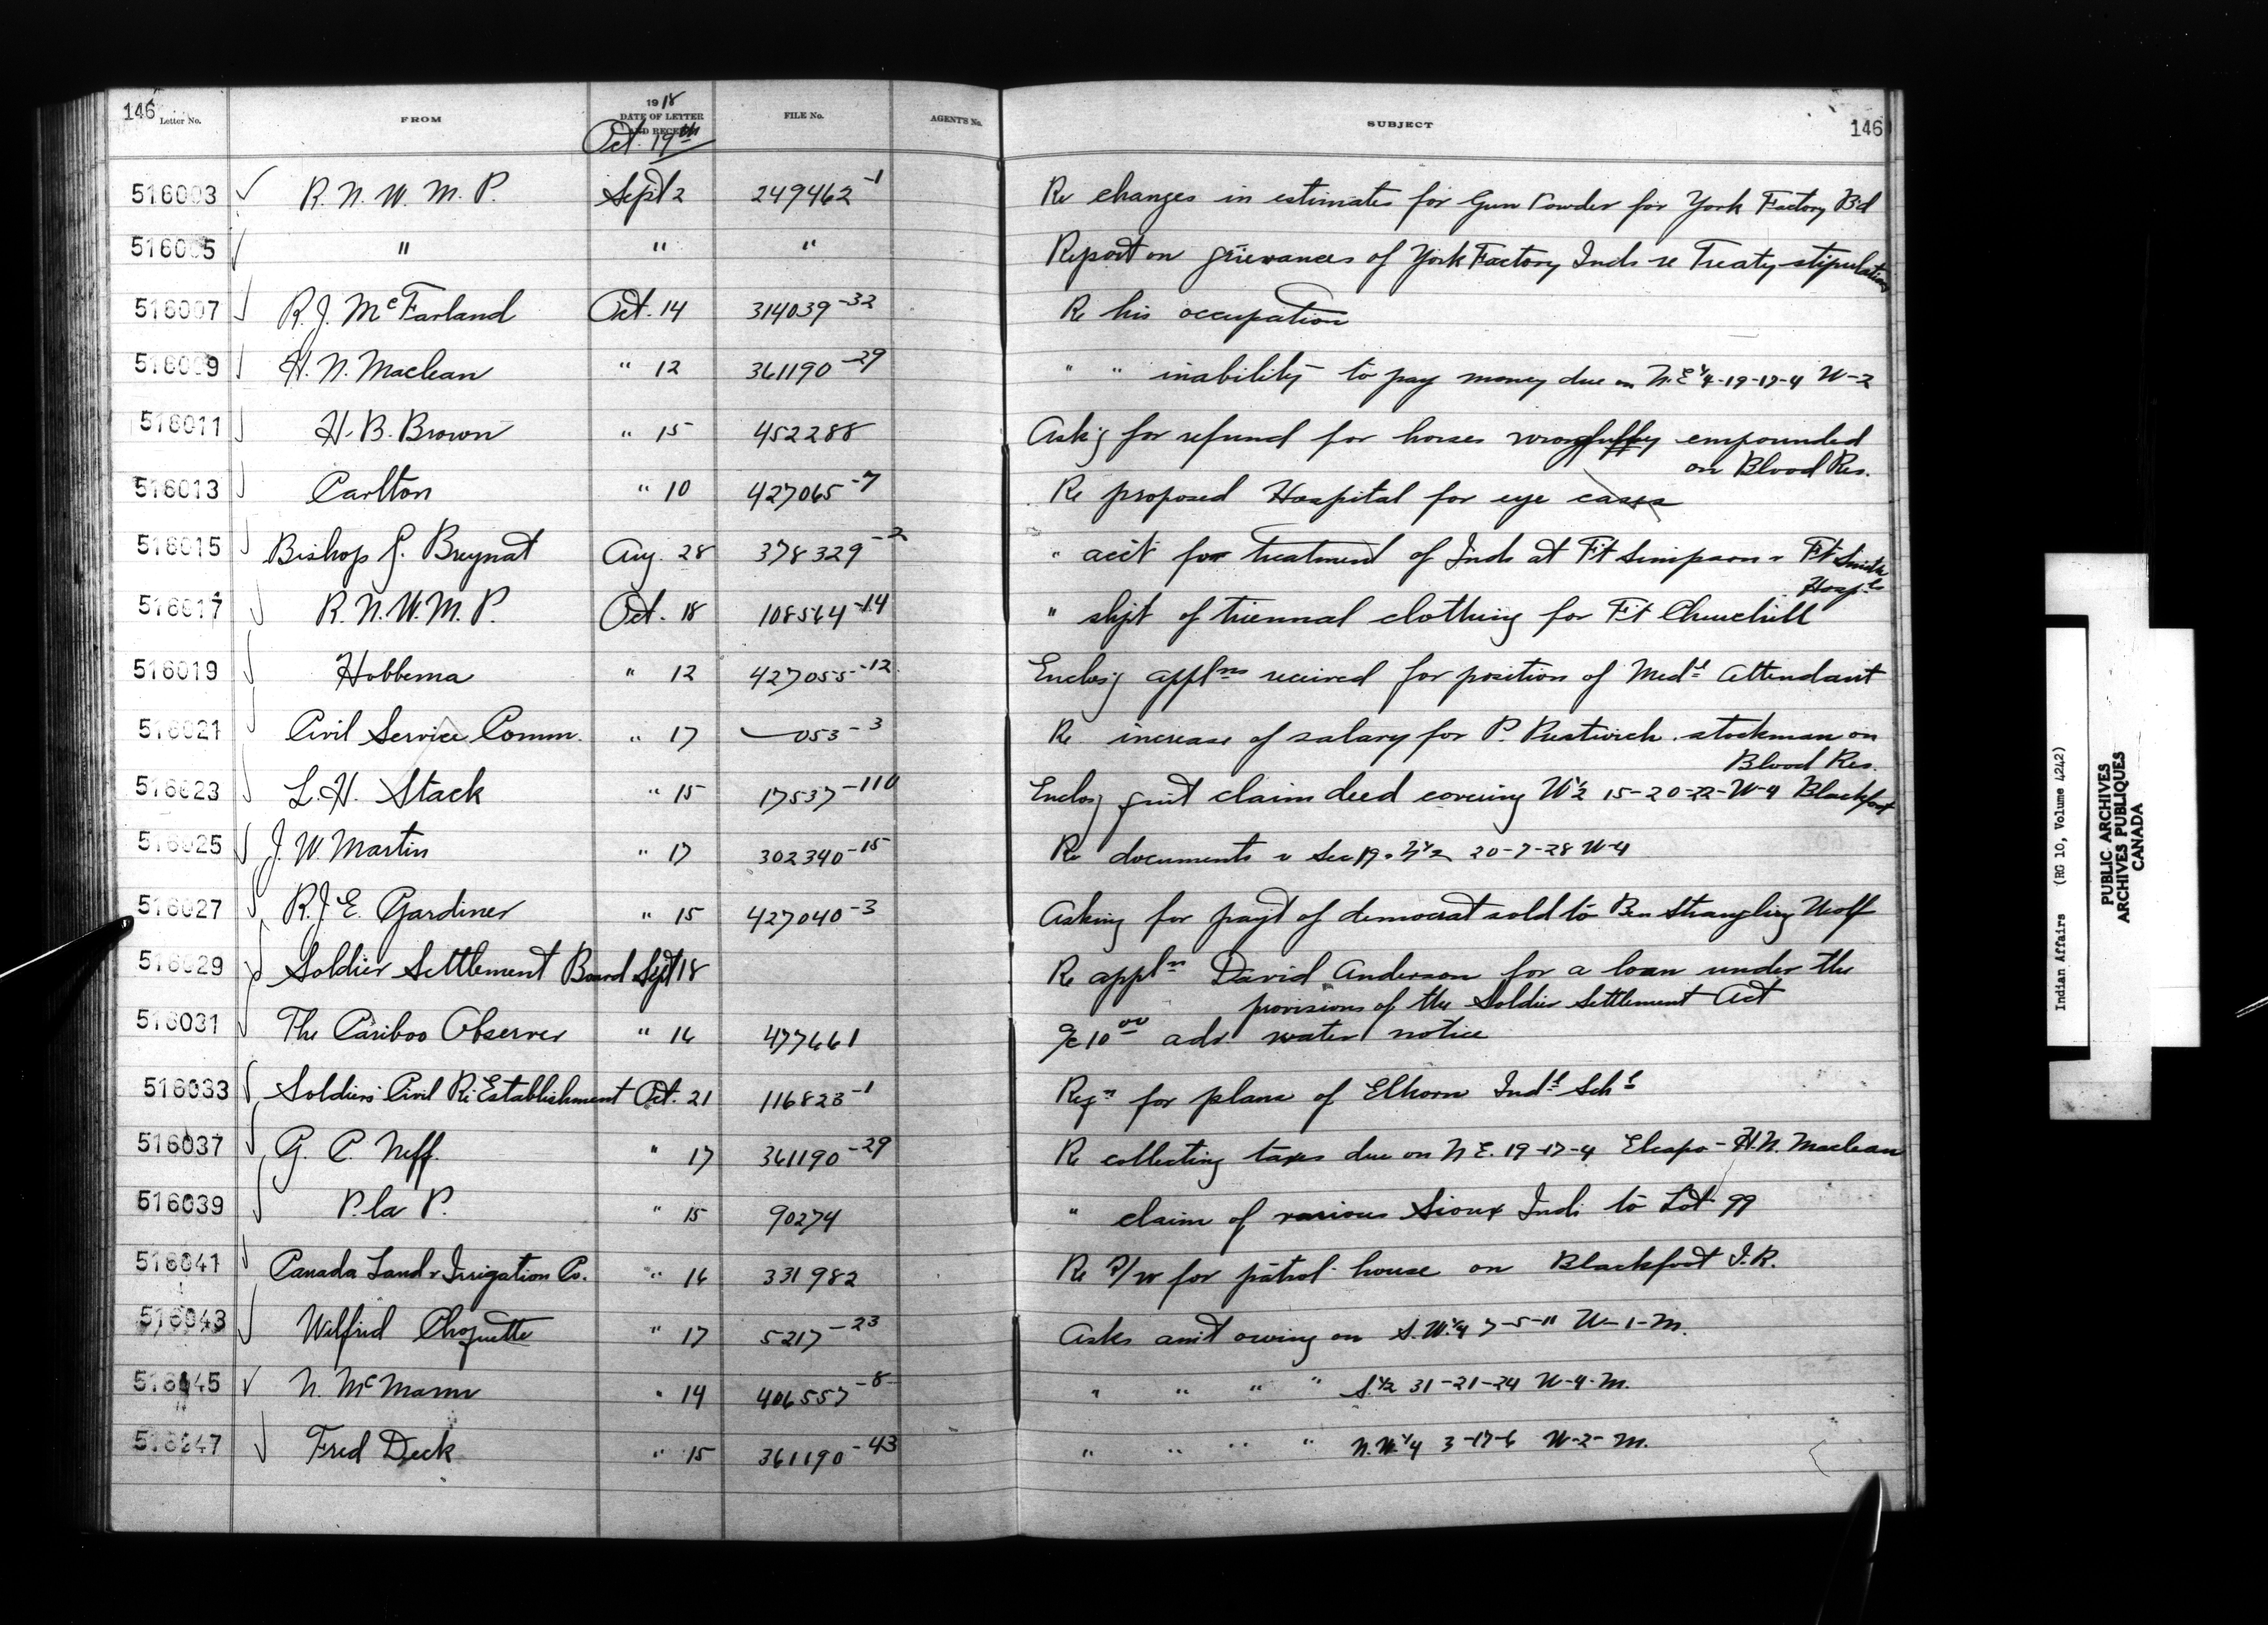 146 Letter No. FROM 1918 DATE OF LETTER AND RECEIPT FILE No. AGENT'S No. SUBJECT 146
Oct. 19th
516003 R. N. W. M. P. Sept 2 249462-1 Re changes in estimates for Gun Powder for York Factory Bd
516005 " " " Report on grievances of York Factory Inds re Treaty stipulations
516007 R. J. McFarland Oct. 14 314039-32 Re his occupation
516009 H. N. Maclean " 12 361190-29 " " inability to pay money due on N.E ¼-19-17-4 W-2
516011 H. B. Brown " 15 452288 Ask'g for refund for horses wrongfully empounded
on Blood Res.
516013 Carlton " 10 427065-7 Re proposed Hospital for eye cases
516015 Bishop G. Breynat Aug. 28 378329-2 " acct for treatment of Inds at Ft Simpson & Ft Smith
Hospls
516017 R. N. W. M. P. Oct. 18 108564-14 " shpt of triennal clothing for Ft Churchill
516019 Hobbema " 12 427055-12 Enclos'g applns received for position of Medl Attendant
516021 Civil Service Comm. " 17 053-3 Re increase of salary for P. Prestwich stockman on
Blood Res.
516023 L. H. Stack " 15 17537-110 Enclos'g quit claim deed covering W ½ 15-20-22-W-4 Blackfoot
516025 J. W. Martin " 17 302340-15 Re documents Sec 19 & N ½ 20-7-28 W-4
516027 R. J. E. Gardiner " 15 427040-3 Asking for payt of democrat sold to Ben Strangling Wolf
516029 Soldier Settlement Board Sept 18 Re appln David Anderson for a loan under the
provisions of the Soldier Settlement Act
516031 The Cariboo Observer " 16 477661 a/c 10 00 adv. water notice
516033 Soldiers Civil Re-Establishment Oct. 21 116823-1 Reqn for plans of Elkhorn Indl Schl
516037 G. C. Neff. " 17 361190-29 Re collecting taxes due on N E. 19-17-4 Elcapo - H. N. Maclean
516039 P. la P. " 15 90274 " claim of various Sioux Inds to Lot 99
516041 Canada Land & Irrigation Co. " 16 331982 Re R/W for patrol house on Blackfoot I. R.
516043 Wilfrid Choquette " 17 5217-23 Asks am't owing on S.W. ¼ 7-5-11 W-1-M.
516045 N. McMann " 14 406557-8 " " " " S. ½ 31-21-24 W-4-M.
516047 Fred Deck " 15 361190-43 " " " " N.W ¼ 3-17-6 W-2-M.
Indian Affairs (RG 10, Volume 4242)
PUBLIC ARCHIVES
ARCHIVES PUBLIQUES
CANADA